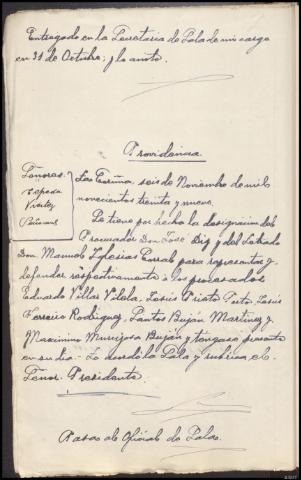 Entregado en la Secretaria de Sala de mi cargo
en 31 de Octubre; y lo anoto.
Providencia
Señores
Cepeda
La Coruña, seis de Noviembre de mil
novecientos treinta y nueve.
Se tiene por hecha la designación del
Procurador Don José y del Letrado
Don Manuel Iglesias Corral para representar y
defender respectivamente a los procesados
Eduardo Villar Vilela, Jesús Prieto Jesús
Ferreiro Rodriguez, Santos Buján Martinez y
Maximino Buján y tengase presente
en su dia. Lo acordó la Sala y rubrica el
Señor Presidente.
Pasa al Oficial de Sala.